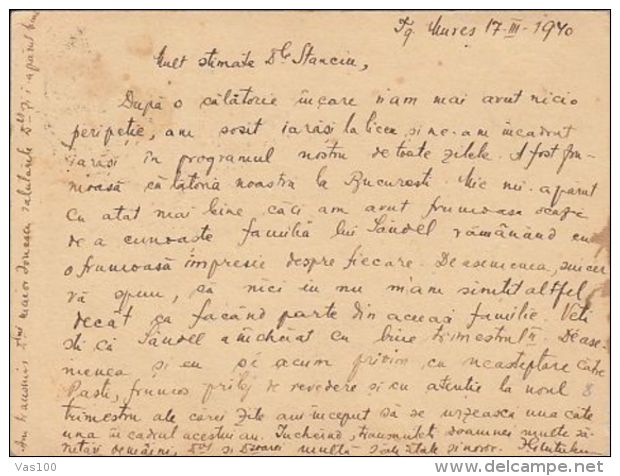 Tg. Mureș 17-III-1940
Mult stimate Dle Stanciu,
După o călătorie în care n'am mai avut nicio
peripeție, am sosit iarăsi la liceu și ne-am încadrat
iarăsi în programul nostru de toate zilele. A fost fru-
moasă călătoria noastra la Bucuresti. Mie mi-a părut
cu atat mai bine căci am avut frumoasa ocazie
de a cunoaste familia lui Săndel rămânând cu
o frumoasă impresie despre fiecare. De asemenea, sincer
vă spun, că nici eu nu m'am simtit altfel
decât ca facând parte din aceeasi familie. Veti
sti că Săndel a încheiat cu bine trimestrul II. De ase-
menea și eu și acum privim cu neasteptare către
Pasti, frumos prilej de revedere și cu atentie la noul
trimestru ale carui zile au început să se urzească una câte
una în cadrul acestui an. Încheind, transmiteti doamnei multe să-
rutări de mâini, Dvs si multă sănătate si noroc.
Am transmis Dlui maior Ionescu salutările Dvs și i-a părut bine
Vas100
www.delcampe.net